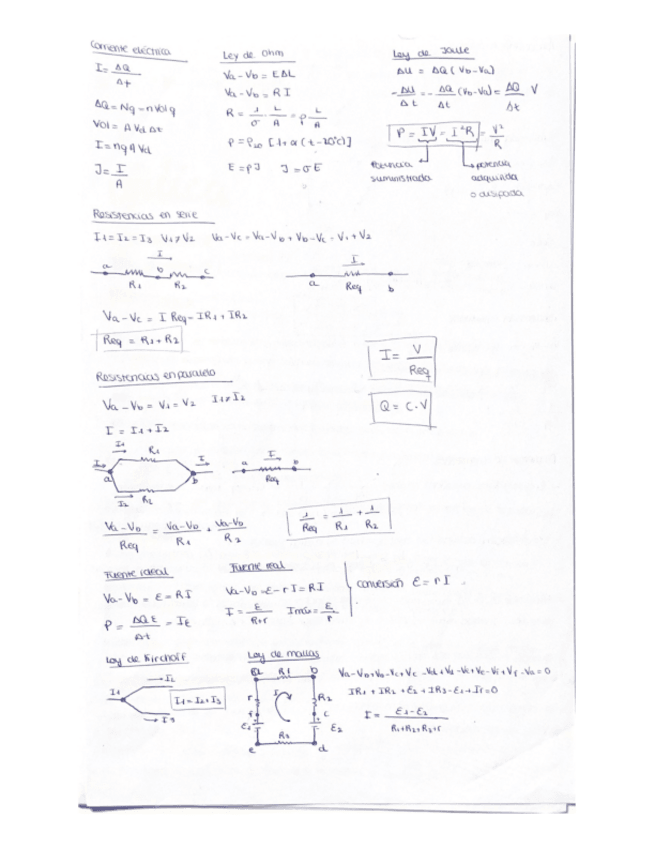 Corriente eléctrica
I = ΔQ / Δt
ΔQ = Nq = nVol q
Vol = A Vd Δt
I = nqA Vd
J = I / A
Ley de Ohm
Va - Vb = EΔL
Va - Vb = R I
R = 1/σ · L/A = ρ L/A
ρ = ρ20 [1 + α (t - 20°C)]
E = ρJ J = σE
Ley de Joule
ΔU = ΔQ (Vb - Va)
- ΔU/Δt = - ΔQ/Δt (Vb - Va) = ΔQ/Δt V
P = IV = I²R = V²/R
potencia suministrada
potencia
adquirida
o disipada
Resistencias en serie
I1 = I2 = I3 V1 ≠ V2 Va - Vc = Va - Vb + Vb - Vc = V1 + V2
I
a b c
R1 R2
I
a Req b
Va - Vc = I Req = IR1 + IR2
Req = R1 + R2
I = V / Req
Q = C · V
Resistencias en paralelo
Va - Vb = V1 = V2 I1 ≠ I2
I = I1 + I2
I1 R1
I a b I
I2 R2
a I b
Req
(Va - Vb)/Req = (Va - Vb)/R1 + (Va - Vb)/R2
1/Req = 1/R1 + 1/R2
Fuente ideal
Va - Vb = ε = R I
P = ΔQ ε / Δt = Iε
Fuente real
Va - Vb = ε - r I = RI
I = ε / R+r Imáx = ε / r
conversión ε = r I
Ley de Kirchoff
I1 I2 I3
I1 = I2 + I3
Ley de mallas
a R1 b
r I R2
f c
E1 E2
e R3 d
Va - Vb + Vb - Vc + Vc - Vd + Vd - Ve + Ve - Vf + Vf - Va = 0
IR1 + IR2 + E2 + IR3 - E1 + Ir = 0
I = E1 - E2 / R1 + R2 + R3 + r